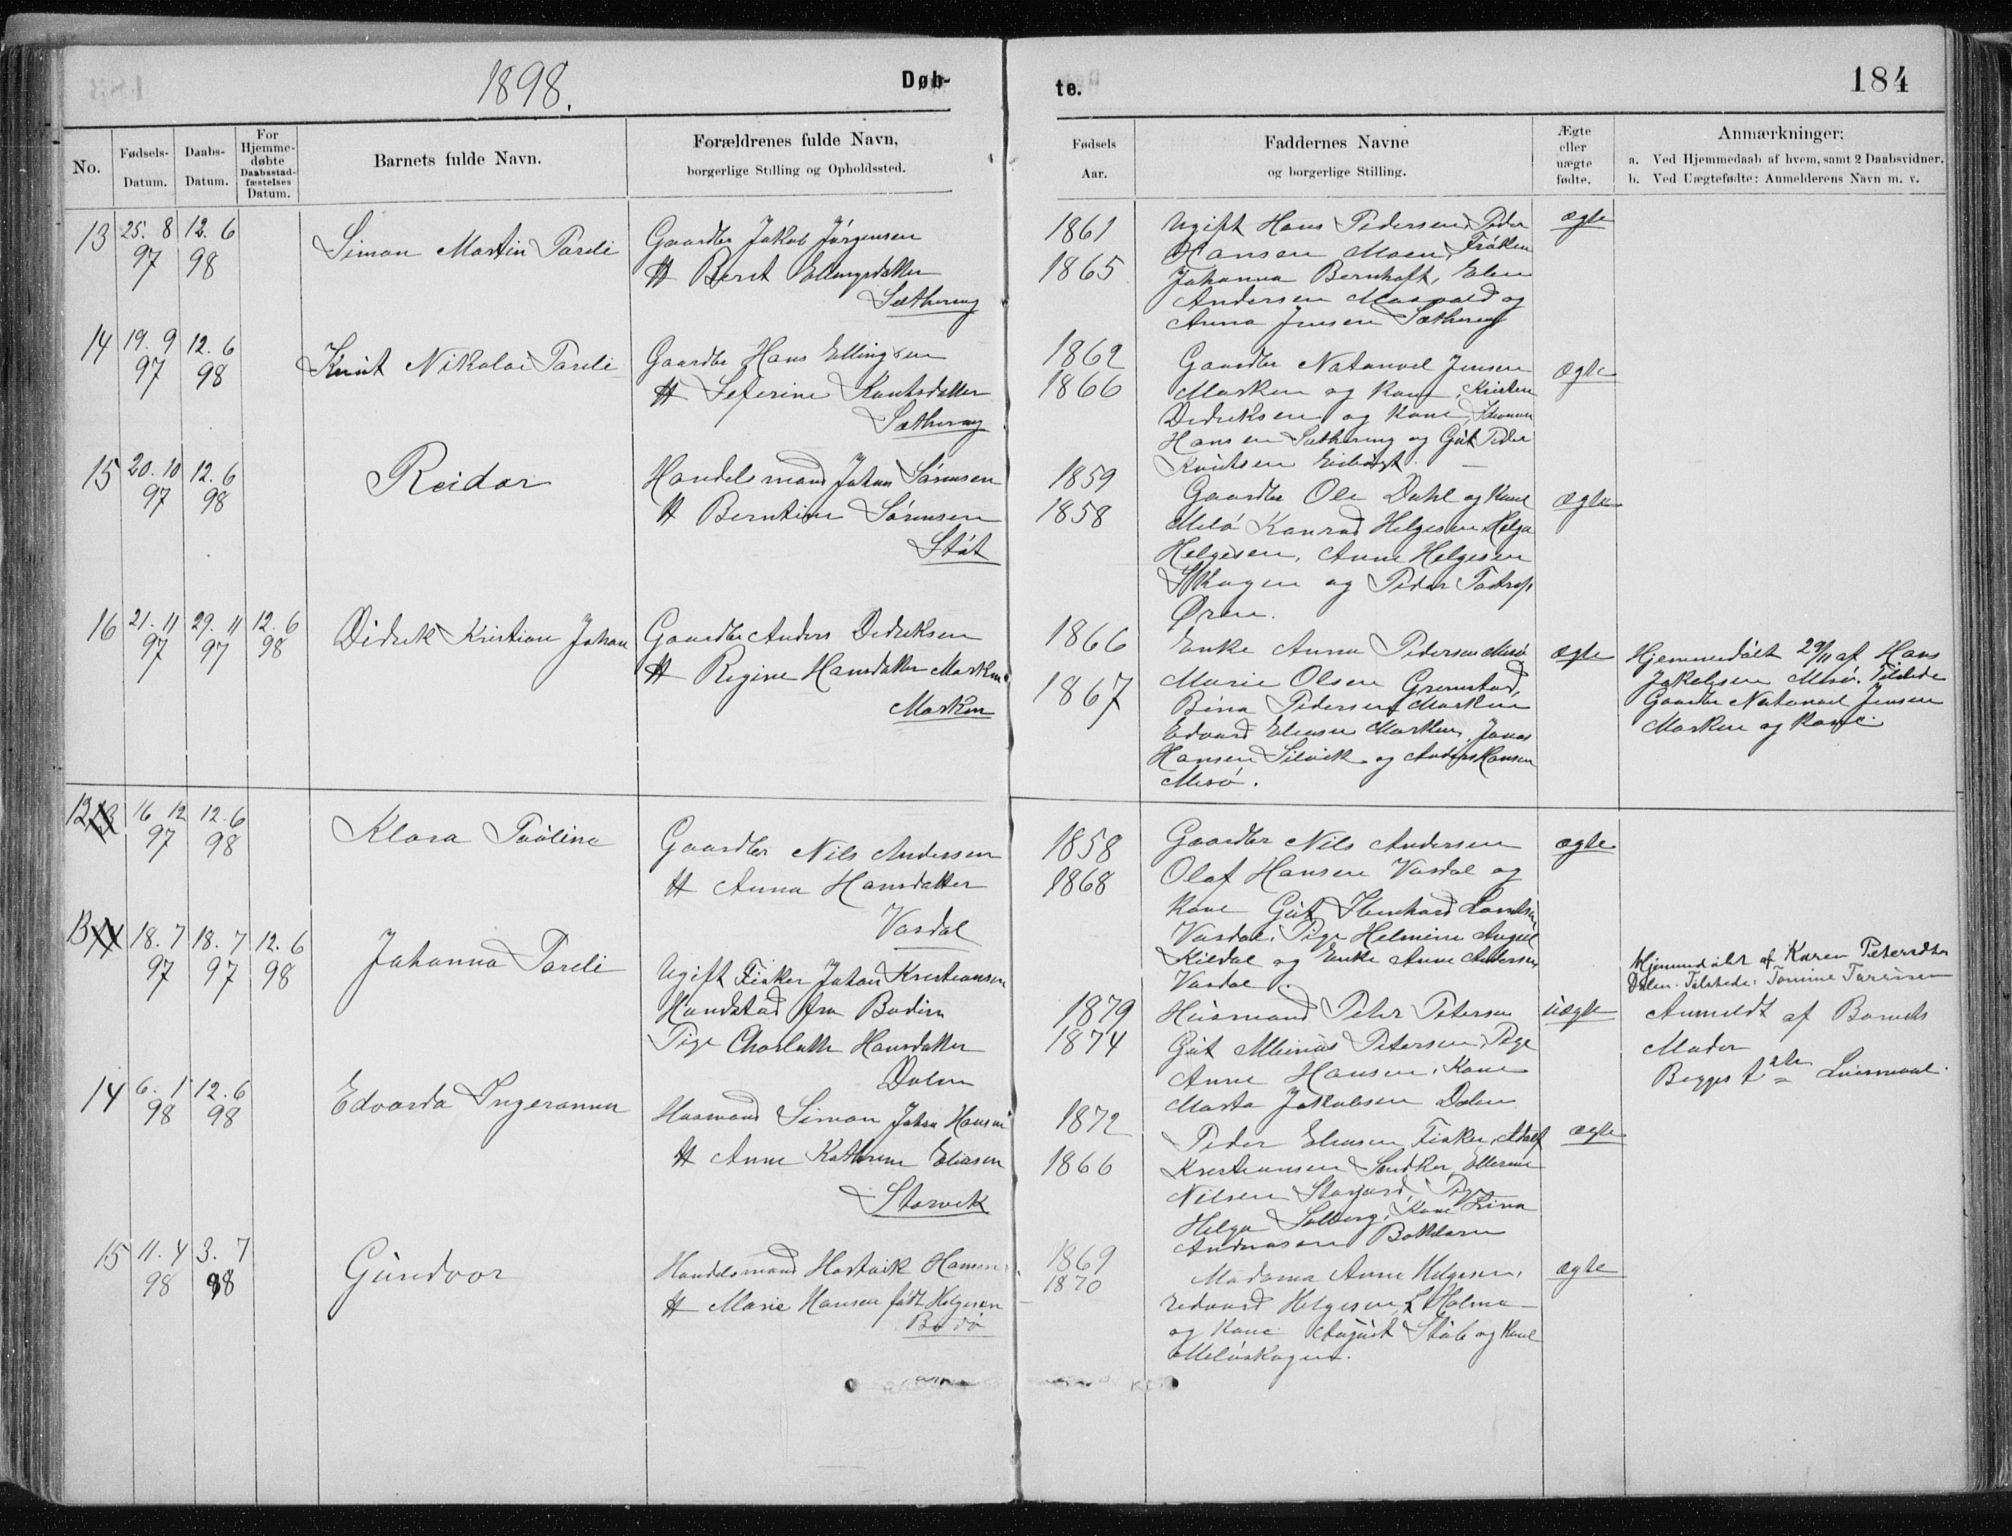 1898.
Døb-
te.
184
No.
Fødsels-
Datum.
Daabs-
Datum.
For
Hjemme-
døbte
Daabsstad-
fæstelses
Datum.
Barnets fulde Navn.
Forældrenes fulde Navn,
borgerlige Stilling og Opholdssted.
Fødsels
Aar.
Faddernes Navne
og borgerlige Stilling.
Ægte
eller
uægte
fødte.
Anmærkninger:
a. Ved Hjemmedaab af hvem, samt 2 Daabsvidner.
b. Ved Uægtefødte: Anmelderens Navn m. v.
13
25. 8
97
12. 6
98
Simon Martin Pareli
Gaardbr Jakob Jörgensen
H Berit Ellingsdatter
Sætheng
1861
1865
Ugift Hans Pedersen, Peder
Hansen Moen, Fröken
Johanna Bernhoft, Elen
Andersen Maavold og
Anna Jensen Sætheng
ægte
14
19. 9
97
12. 6
98
Knut Nikolai Pareli
Gaardbr Hans Ellingsen
H Seferine Knutsdatter
Sætheng
1862
1866
Gaardbr Natanael Jensen
Marken og Kone, Kristen
Dedriksen og Kone,
Hansen Sætheng og Gut Peder
Knutsen
ægte
15
20. 10
97
12. 6
98
Reidar
Handelsmand Johan Sörensen
H Berntine Sörensen
Stöt
1859
1858
Gaardbr Ole Dahl og Kone
Melö Konrad Helgesen, Helga
Helgesen, Anne Helgesen
Skagen og Peder
Ören.
ægte
16
21. 11
97
29. 11
97
12. 6
98
Didrik Kristian Johan
Gaardbr Anders Dedriksen
H Regine Hansdatter Marken
Marken
1866
1867
Enke Anna Pedersen Mesö
Marie Olsen Grimstad,
Bina Pedersen Marken
Edvard Eliasen Marken, Jonas
Hansen Selvik og Anders Hansen
Mesö.
ægte
Hjemmedöbt 29/11 af Hans
Jakobsen Mesö. Tilstede
Gaardbr Natanael Jensen
Marken og Kone.
12
16 12
97
12. 6
98
Klara Paöline
Gaardbr Nils Andersen
H Anna Hansdatter
Vasdal
1858
1868
Gaardbr Nils Andersen
Olaf Hansen Vasdal og
Kone Gut
Vasdal, Pige Helmine
Kildal og Enke Anne Andersen
Vasdal.
ægte
13
18. 7
97
18. 7
97
12. 6
98
Johanna Pareli
Ugift Fisker Johan Kristiansen
Hundstad fra Bodin
Pige Charlotte Hansdatter
Dalen
1879
1874
Husmand Peter Petersen
Gut Meinus Petersen, Pige
Anne Hansen, Kone
Marta Jakobsen Dalen
uægte
Hjemmedöbt af Karen Petersdtr
Dalen. Tilstede:
Anmeldt af Barnets
Moder
Begges 1ste Leiermaal.
14
6. 1
98
12. 6
98
Edvarda Ingeranna
Husmand Simon Johan Hansen
H Anne Kathrine Eliasen
Storvik
1872
1866
Peder Eliasen Fisker, Adolf
Kristiansen Sandker, Ellerine
Nilsen Storjord, Pige
Helga Solberg, Kone Lina
Andreasen
ægte
15
11. 4
98
3. 7
98
Gundvor
Handelsmand Hartvik Hansen
H Marie Hansen födt Helgesen
Bodö
1869
1870
Madama Anne Helgesen,
Edvard Helgesen, L Holma
og Kone August Stöt og Kone
Melöskagen.
ægte